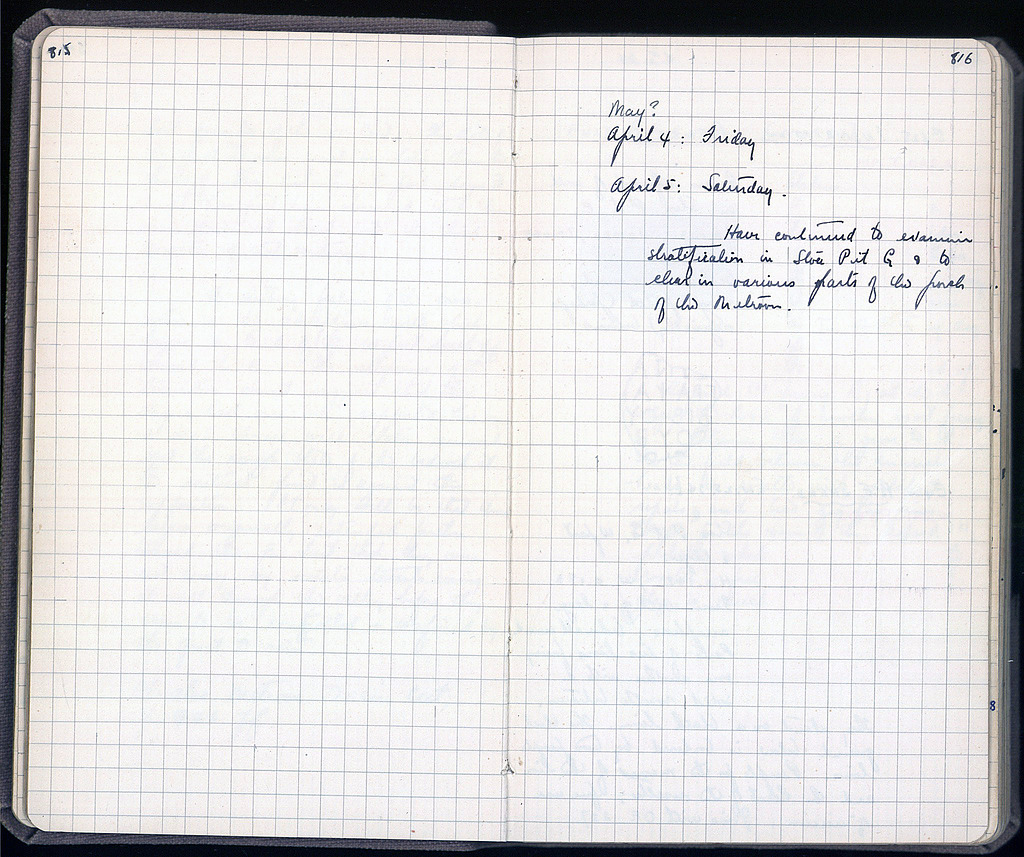 815
816
May?
April 4 : Friday
April 5 : Saturday.
Have continued to examine
stratification in Stoa Pit G & to
clear in various parts of the porch
of the Metroon.
8